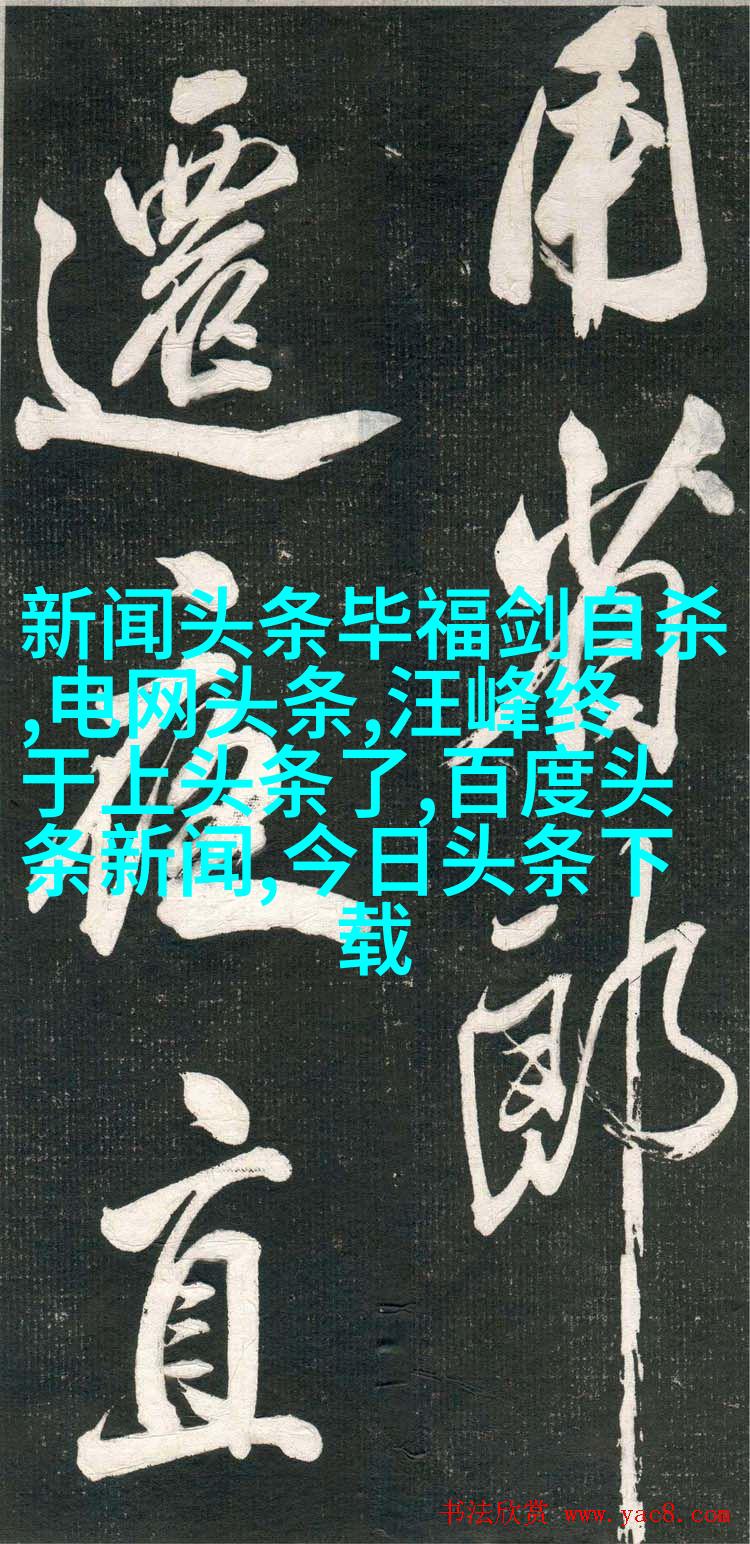 用省郎
遷直
新闻头条毕福剑自杀
,电网头条,汪峰终
于上头条了,百度头
条新闻,今日头条下
载
书法欣赏 www.yac8.com